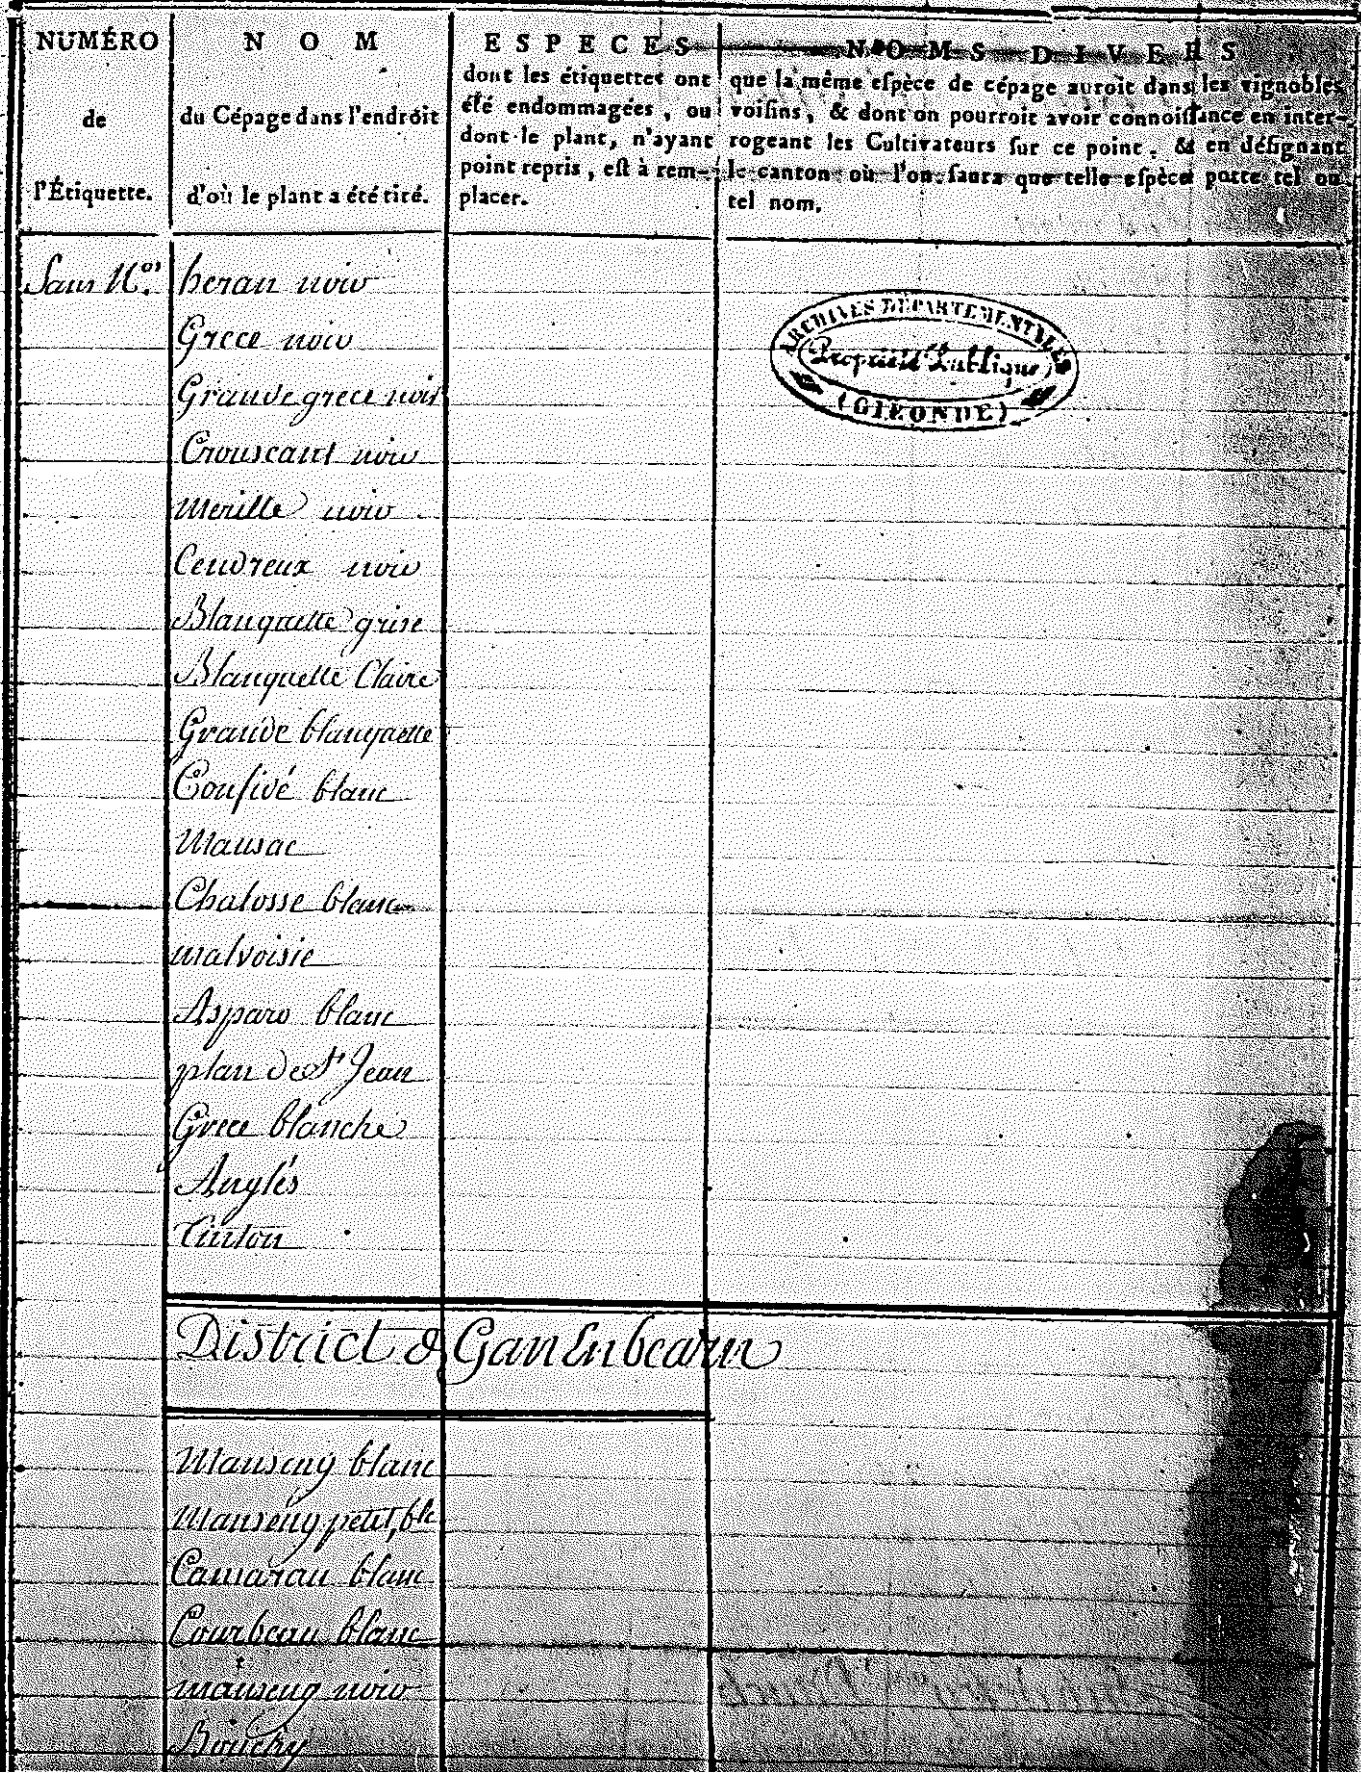 NUMÉRO
de
l'Étiquette.
NOM
du Cépage dans l'endroit
d'où le plant a été tiré.
ESPECES
dont les étiquettes ont
été endommagées, ou
dont le plant, n'ayant
point repris, est à rem-
placer.
NOMS DIVERS
que la même espèce de cépage auroit dans les vignobles
voisins, & dont on pourroit avoir connoissance en inter-
rogeant les Cultivateurs sur ce point, & en désignant
le canton où l'on saura que telle espèce porte tel ou
tel nom.
Sans Nos. heran noir
Grece noir
Grande grece noir
Crouscant noir
Merille noir
Cendreux noir
Blanquette grise
Blanquette Claire
Grande blanquette
Confivé blanc
Mausac
Chalosse blanc
malvoisie
Asparo blanc
plan de St Jean
Grece blanche
Anglés
Tinton
ARCHIVES DÉPARTEMENTALES
Propriété Publique
(GIRONDE)
District de Gan En bearn
Manseng blanc
Manseng petit, blc
Camarau blanc
Courbeau blanc
manseng noir
Bouchy